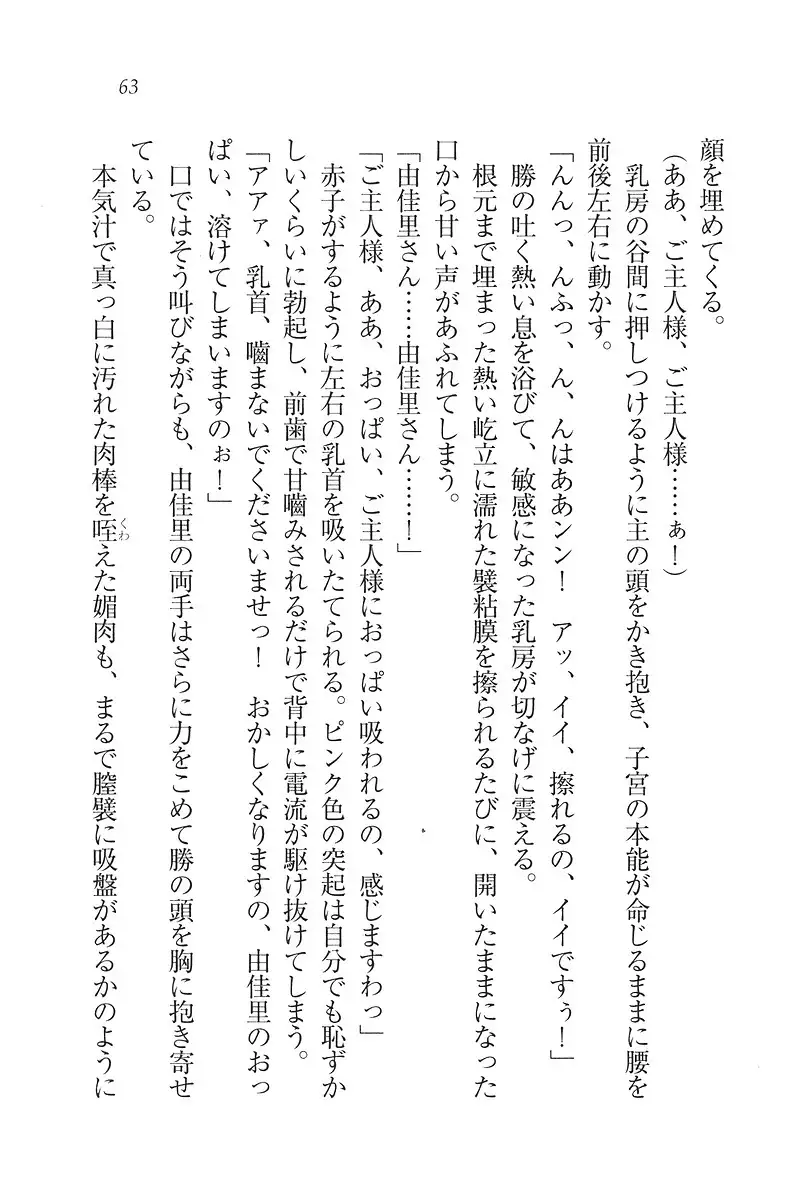 63
顔を埋めてくる。
（ああ、ご主人様、ご主人様……ぁ！）
乳房の谷間に押しつけるように主の頭をかき抱き、子宮の本能が命じるままに腰を
前後左右に動かす。
「んんっ、んふっ、ん、んはあンン！　アッ、イイ、擦れるの、イイですぅ！」
勝の吐く熱い息を浴びて、敏感になった乳房が切なげに震える。
根元まで埋まった熱い屹立に濡れた襞粘膜を擦られるたびに、開いたままになった
口から甘い声があふれてしまう。
「由佳里さん……由佳里さん……！」
「ご主人様、ああ、おっぱい、ご主人様におっぱい吸われるの、感じますわっ」
赤子がするように左右の乳首を吸いたてられる。ピンク色の突起は自分でも恥ずか
しいくらいに勃起し、前歯で甘嚙みされるだけで背中に電流が駆け抜けてしまう。
「アアァ、乳首、嚙まないでくださいませっ！　おかしくなりますの、由佳里のおっ
ぱい、溶けてしまいますのぉ！」
口ではそう叫びながらも、由佳里の両手はさらに力をこめて勝の頭を胸に抱き寄せ
ている。
本気汁で真っ白に汚れた肉棒を咥くわえた媚肉も、まるで膣襞に吸盤があるかのように